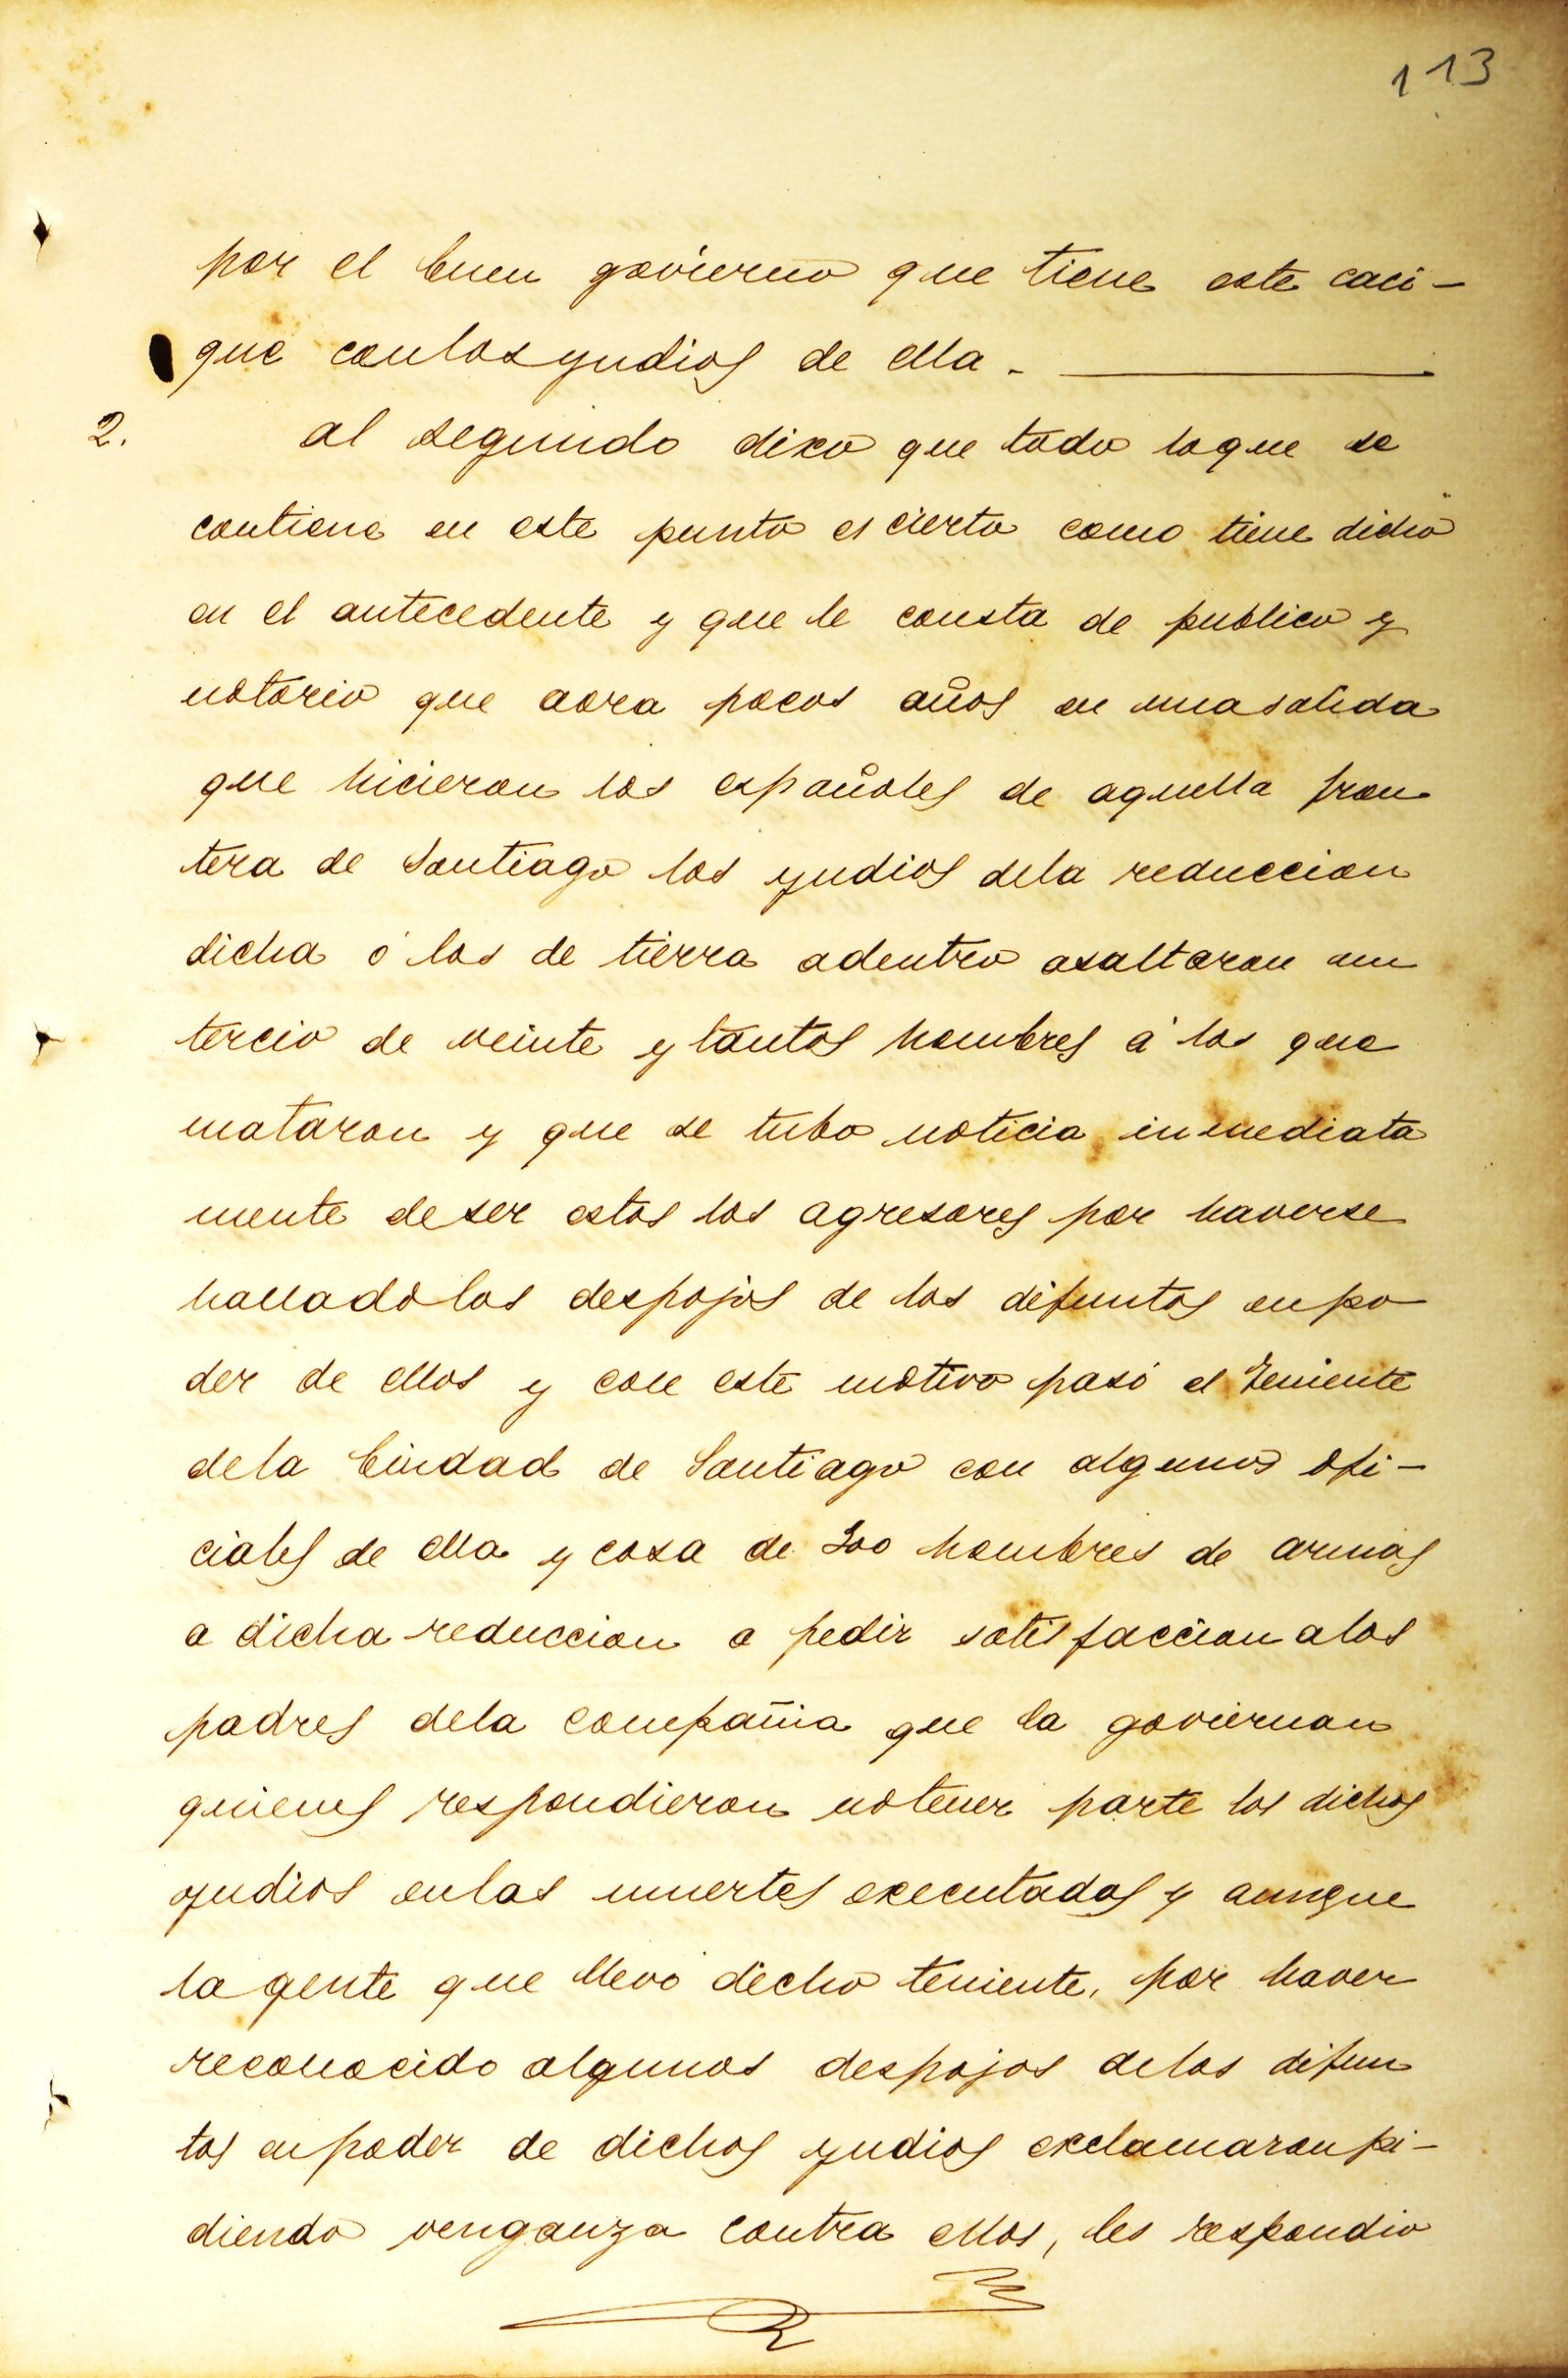 113
por el buen govierno que tiene este caci-
que conlosyndios de ella.
2. al segundo dixo que todo loque se
contiene en este punto es cierto como tiene dicho
en el antecedente y que le consta de publico y
notorio que aora pocos años en unasalida
que hicieron los españoles de aquella fron
tera de Santiago los yndios dela reduccion
dicha ó los de tierra adentro asaltaron un
tercio de veinte y tantos hombres á los que
mataron y que se tubo noticia inmediata
mente deser estos los agresores por haverse
hallado los despojos de los difuntos enpo
der de ellos y con este motivo pasó el Teniente
dela Ciudad de Santiago con algunos ofi-
ciales de ella y cosa de 300 hombres de armas
a dicha reduccion a pedir satisfaccion alos
padres dela compañia que la goviernan
quienes respondieron notener parte los dichos
yndios enlas muertes executadas y aunque
la gente que llevó dicho teniente, por haver
reconocido algunos despojos delos difun
tos enpoder de dichos yndios exclamaronpi-
diendo venganza contra ellos, les respondio